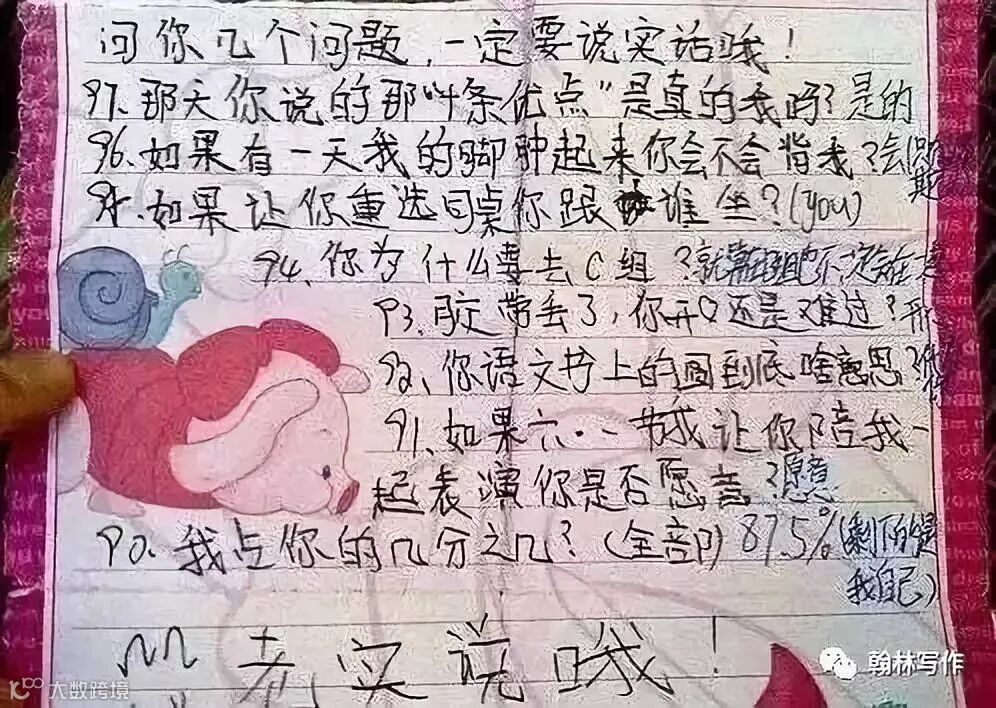 问你几个问题,一定要说实话哦!
97.那天你说的那"4条优点"是真的我吗?是的
96.如果有一天我的脚肿起来你会不会背我?会
95.如果让你重选同桌你跟谁坐?(you)
94.你为什么要去C组?就算
93.胶带丢了,你开心还是难过?开
92、你语文书上的圆到底啥意思?
91.如果六·一节我让你陪我一
起表演你是否愿意?愿意
90.我占你的几分之几?(全部)87.5%(剩下的是
我自己)
老实说哦!
翰林写作
大数跨境